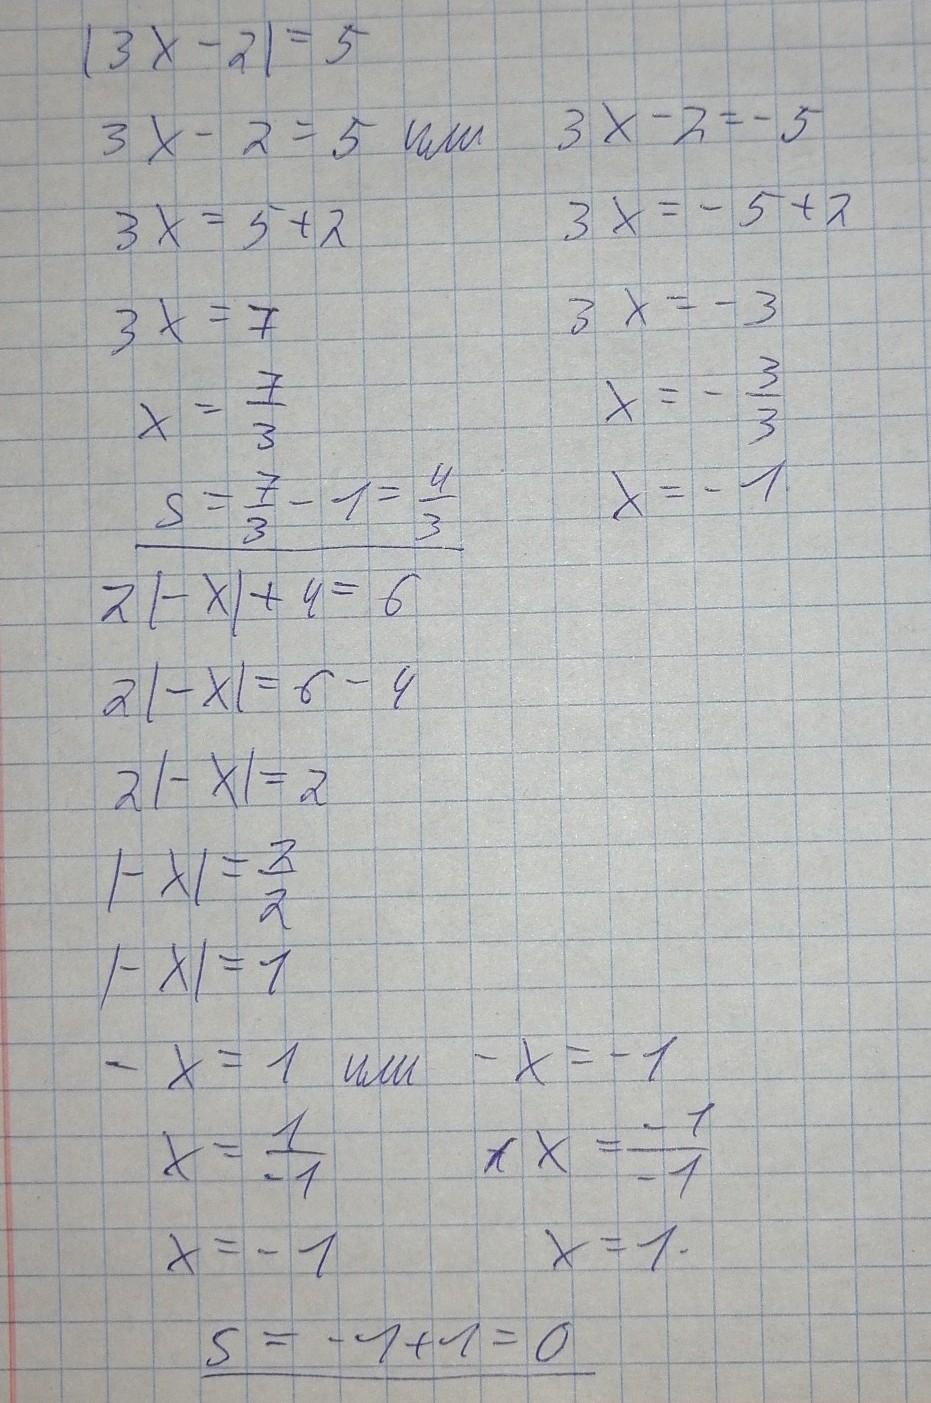 |3x - 2| = 5
3x - 2 = 5 или 3x - 2 = -5
3x = 5 + 2 3x = -5 + 2
3x = 7 3x = -3
x = 7/3 x = -3/3
s = 7/3 - 1 = 4/3 x = -1
2|-x| + 4 = 6
2|-x| = 6 - 4
2|-x| = 2
|-x| = 2/2
|-x| = 1
-x = 1 или -x = -1
x = 1/-1 x = -1/-1
x = -1 x = 1.
s = -1 + 1 = 0